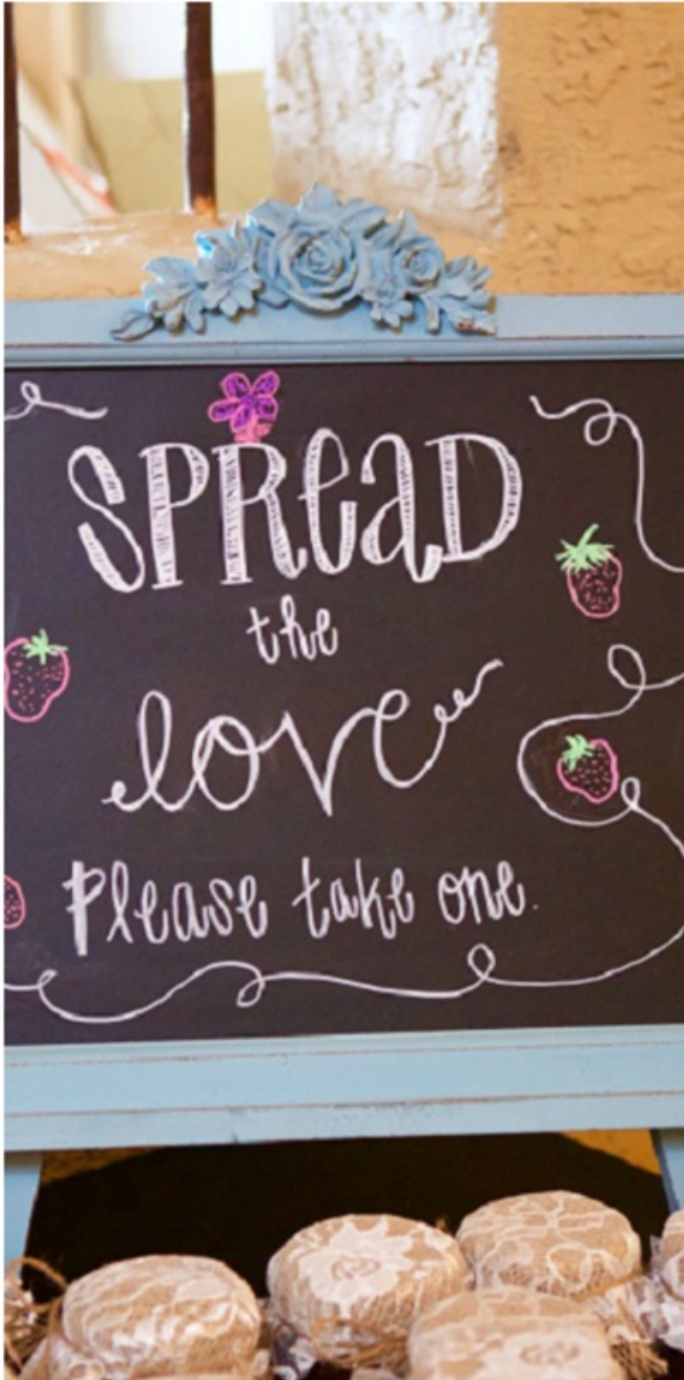 SPReaD
the
love
Please take one.